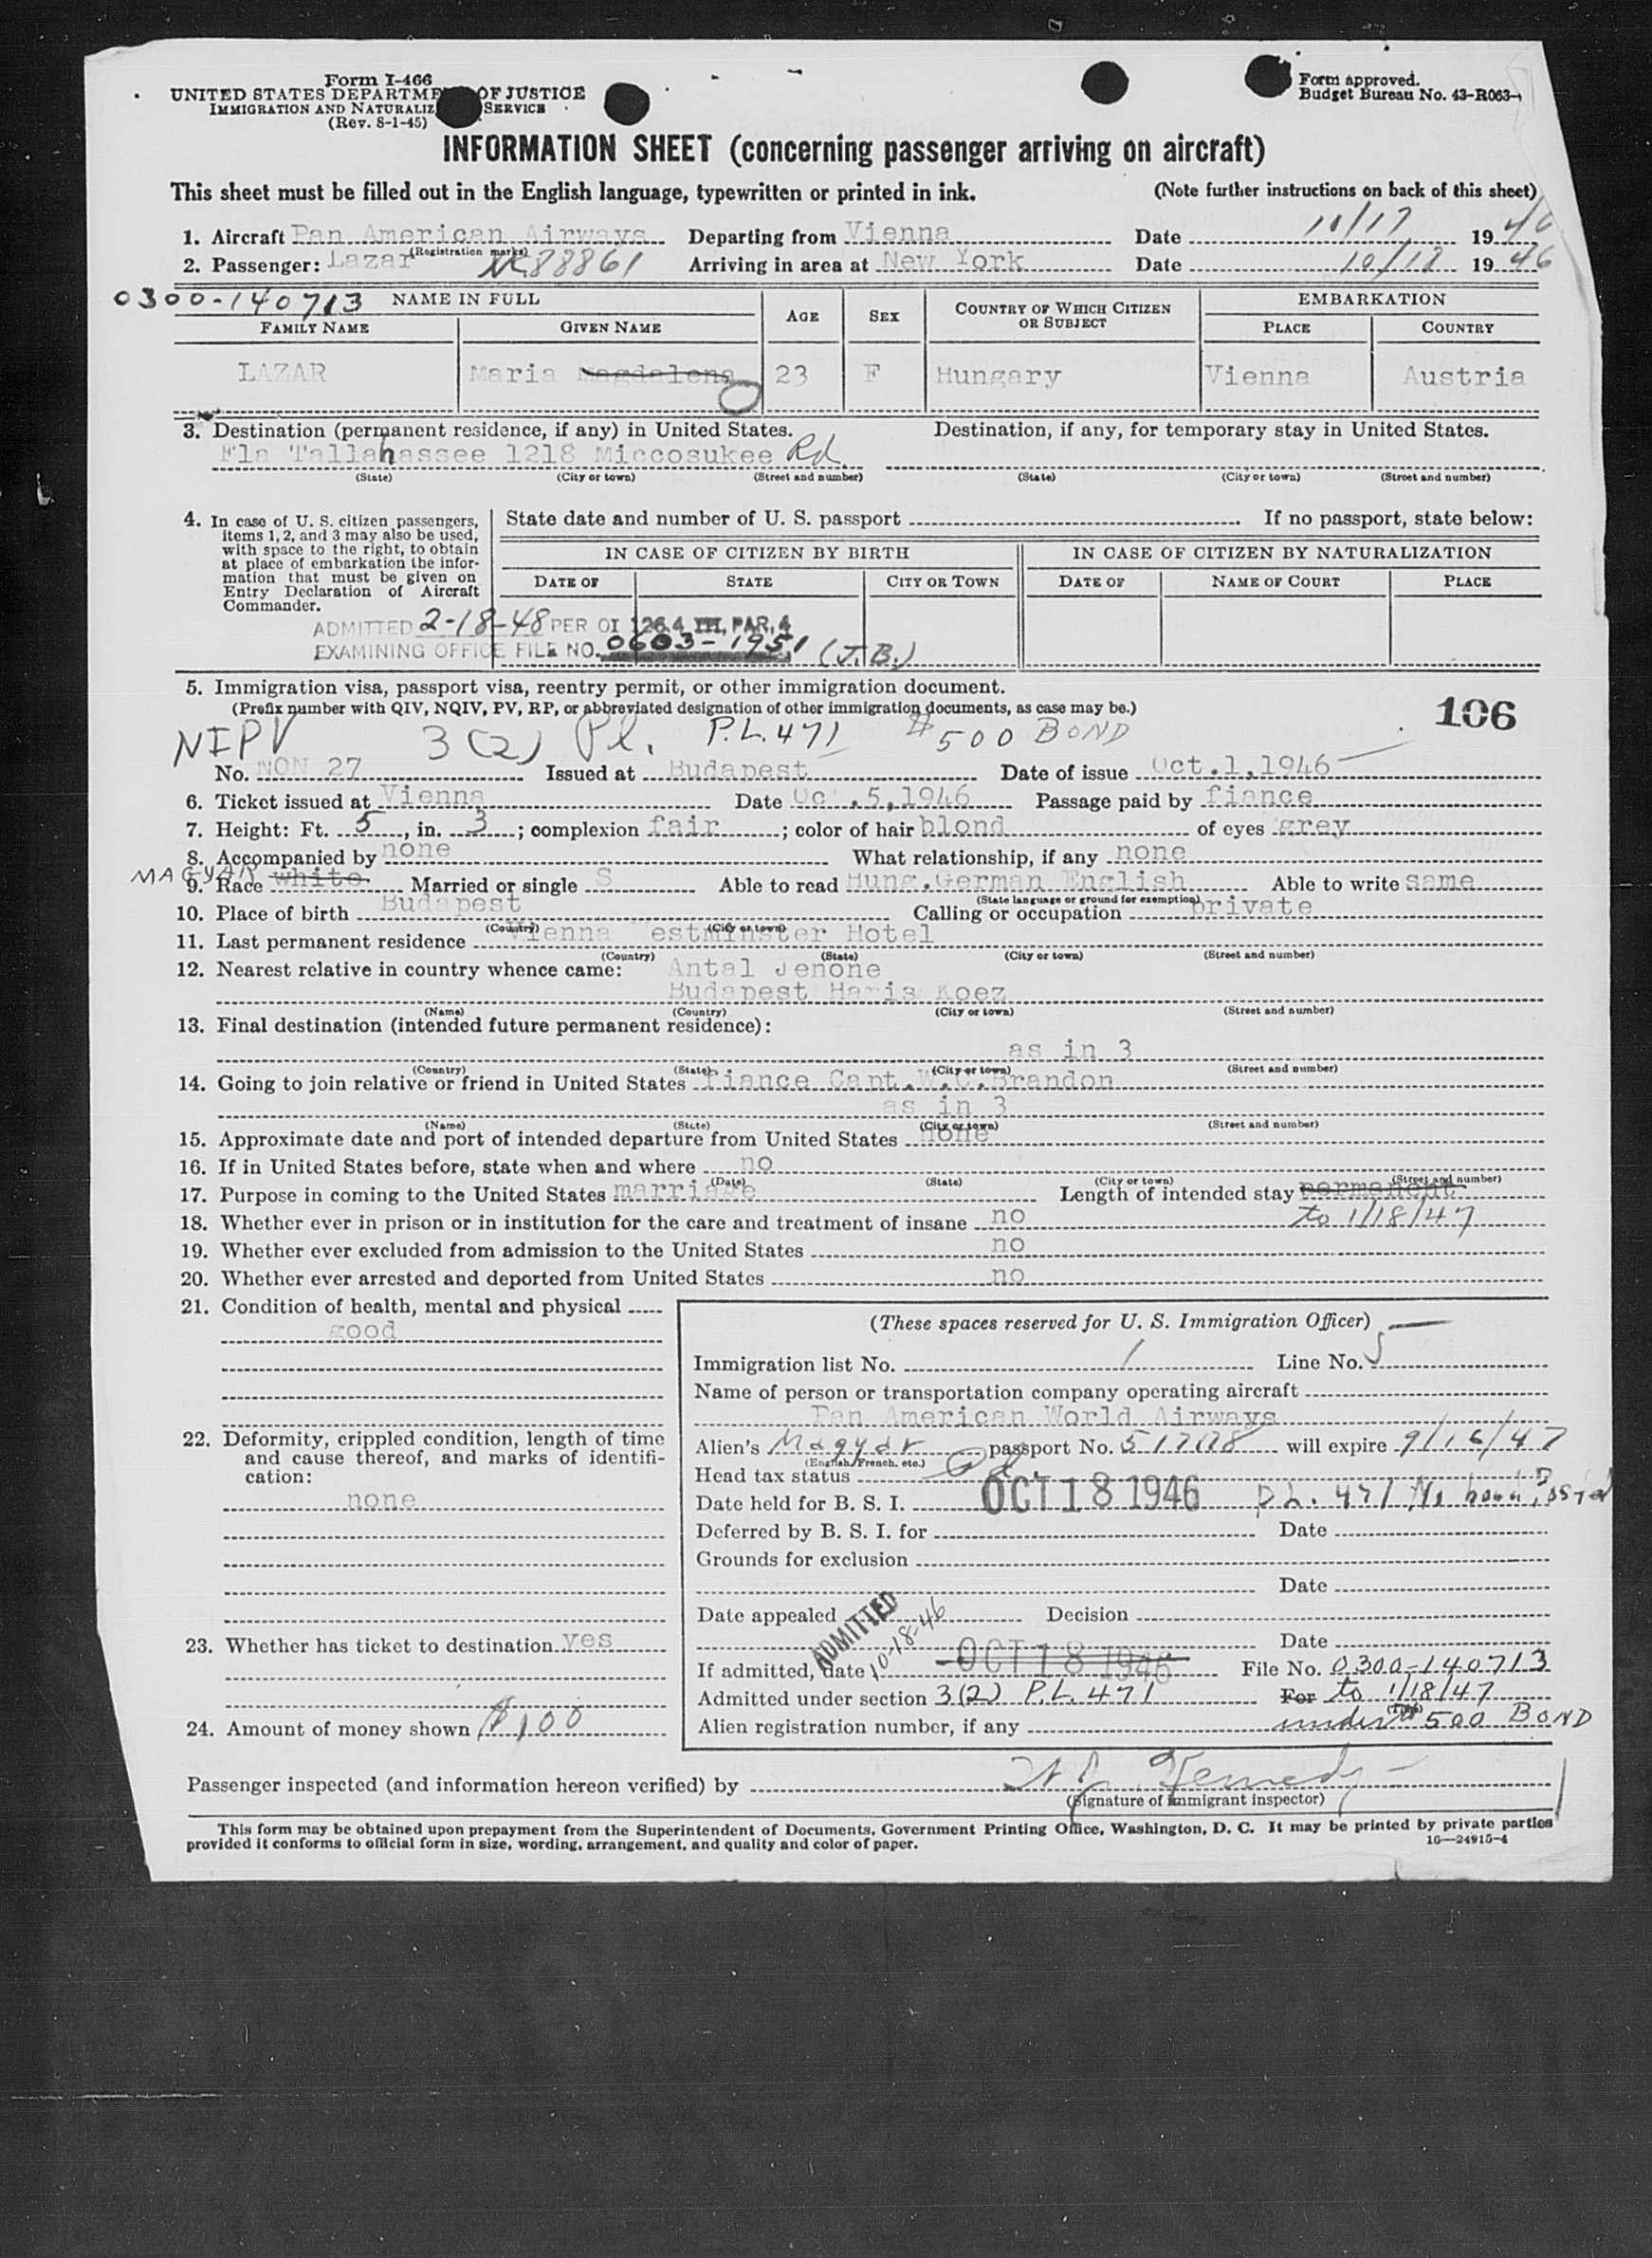 Form I-466
UNITED STATES DEPARTME OF JUSTICE
IMMIGRATION AND NATURALIZ SERVICE
(Rev. 8-1-45)
Form approved.
Budget Bureau No. 43-R063-
INFORMATION SHEET (concerning passenger arriving on aircraft)
This sheet must be filled out in the English language, typewritten or printed in ink. (Note further instructions on back of this sheet)
1. Aircraft Pan American Airways Departing from Vienna Date 10/17 1946
(Registration marks)
2. Passenger: Lazar NC88861 Arriving in area at New York Date 10/18 1946
0300-140713 NAME IN FULL AGE SEX COUNTRY OF WHICH CITIZEN OR SUBJECT EMBARKATION
FAMILY NAME GIVEN NAME PLACE COUNTRY
LAZAR Maria Magdalena 23 F Hungary Vienna Austria
3. Destination (permanent residence, if any) in United States. Destination, if any, for temporary stay in United States.
Fla Tallahassee 1218 Miccosukee Rd
(State) (City or town) (Street and number) (State) (City or town) (Street and number)
4. In case of U. S. citizen passengers, items 1, 2, and 3 may also be used, with space to the right, to obtain at place of embarkation the information that must be given on Entry Declaration of Aircraft Commander.
State date and number of U. S. passport If no passport, state below:
IN CASE OF CITIZEN BY BIRTH IN CASE OF CITIZEN BY NATURALIZATION
DATE OF STATE CITY OR TOWN DATE OF NAME OF COURT PLACE
ADMITTED 2-18-48 PER OI 126.4 III, PAR, 4
EXAMINING OFFICE FILE NO. 0603-1951 (J.B.)
5. Immigration visa, passport visa, reentry permit, or other immigration document.
(Prefix number with QIV, NQIV, PV, RP, or abbreviated designation of other immigration documents, as case may be.)
106
NIPV 3(2) Pl. P.L. 471 $500 BOND
No. NON 27 Issued at Budapest Date of issue Oct.1,1946
6. Ticket issued at Vienna Date Oc .5,1946 Passage paid by fiance
7. Height: Ft. 5, in. 3; complexion fair; color of hair blond of eyes grey
8. Accompanied by none What relationship, if any none
MAGYAR
9. Race white Married or single S Able to read Hung.German English Able to write same
(State language or ground for exemption)
10. Place of birth Budapest Calling or occupation private
(Country) (City or town)
11. Last permanent residence Vienna estminster Hotel
(Country) (State) (City or town) (Street and number)
12. Nearest relative in country whence came: Antal Jenone
Budapest Haris Koez
(Name) (Country) (City or town) (Street and number)
13. Final destination (intended future permanent residence):
as in 3
(Country) (State) (City or town) (Street and number)
14. Going to join relative or friend in United States fiance Capt.W.C.Brandon
as in 3
(Name) (State) (City or town) (Street and number)
15. Approximate date and port of intended departure from United States none
16. If in United States before, state when and where no
(Date) (State) (City or town) (Street and number)
17. Purpose in coming to the United States marriage Length of intended stay permanent
to 1/18/47
18. Whether ever in prison or in institution for the care and treatment of insane no
19. Whether ever excluded from admission to the United States no
20. Whether ever arrested and deported from United States no
21. Condition of health, mental and physical
good
22. Deformity, crippled condition, length of time and cause thereof, and marks of identification:
none
23. Whether has ticket to destination yes
24. Amount of money shown $100
(These spaces reserved for U. S. Immigration Officer)
Immigration list No. 1 Line No. 5
Name of person or transportation company operating aircraft
Pan American World Airways
Alien's Magyar passport No. will expire 9/16/47
(English, French, etc.)
Head tax status
Date held for B. S. I. OCT 18 1946 P.L. 471 No bond Posted
Deferred by B. S. I. for Date
Grounds for exclusion
Date
Date appealed Decision
ADMITTED 10-18-46
Date
If admitted, date OCT 18 1946 File No. 0300-140713
Admitted under section 3(2) P.L. 471 For to 1/18/47
Alien registration number, if any under $500 BOND
Passenger inspected (and information hereon verified) by
(Signature of immigrant inspector)
This form may be obtained upon prepayment from the Superintendent of Documents, Government Printing Office, Washington, D. C. It may be printed by private parties
provided it conforms to official form in size, wording, arrangement, and quality and color of paper. 16—24915-4